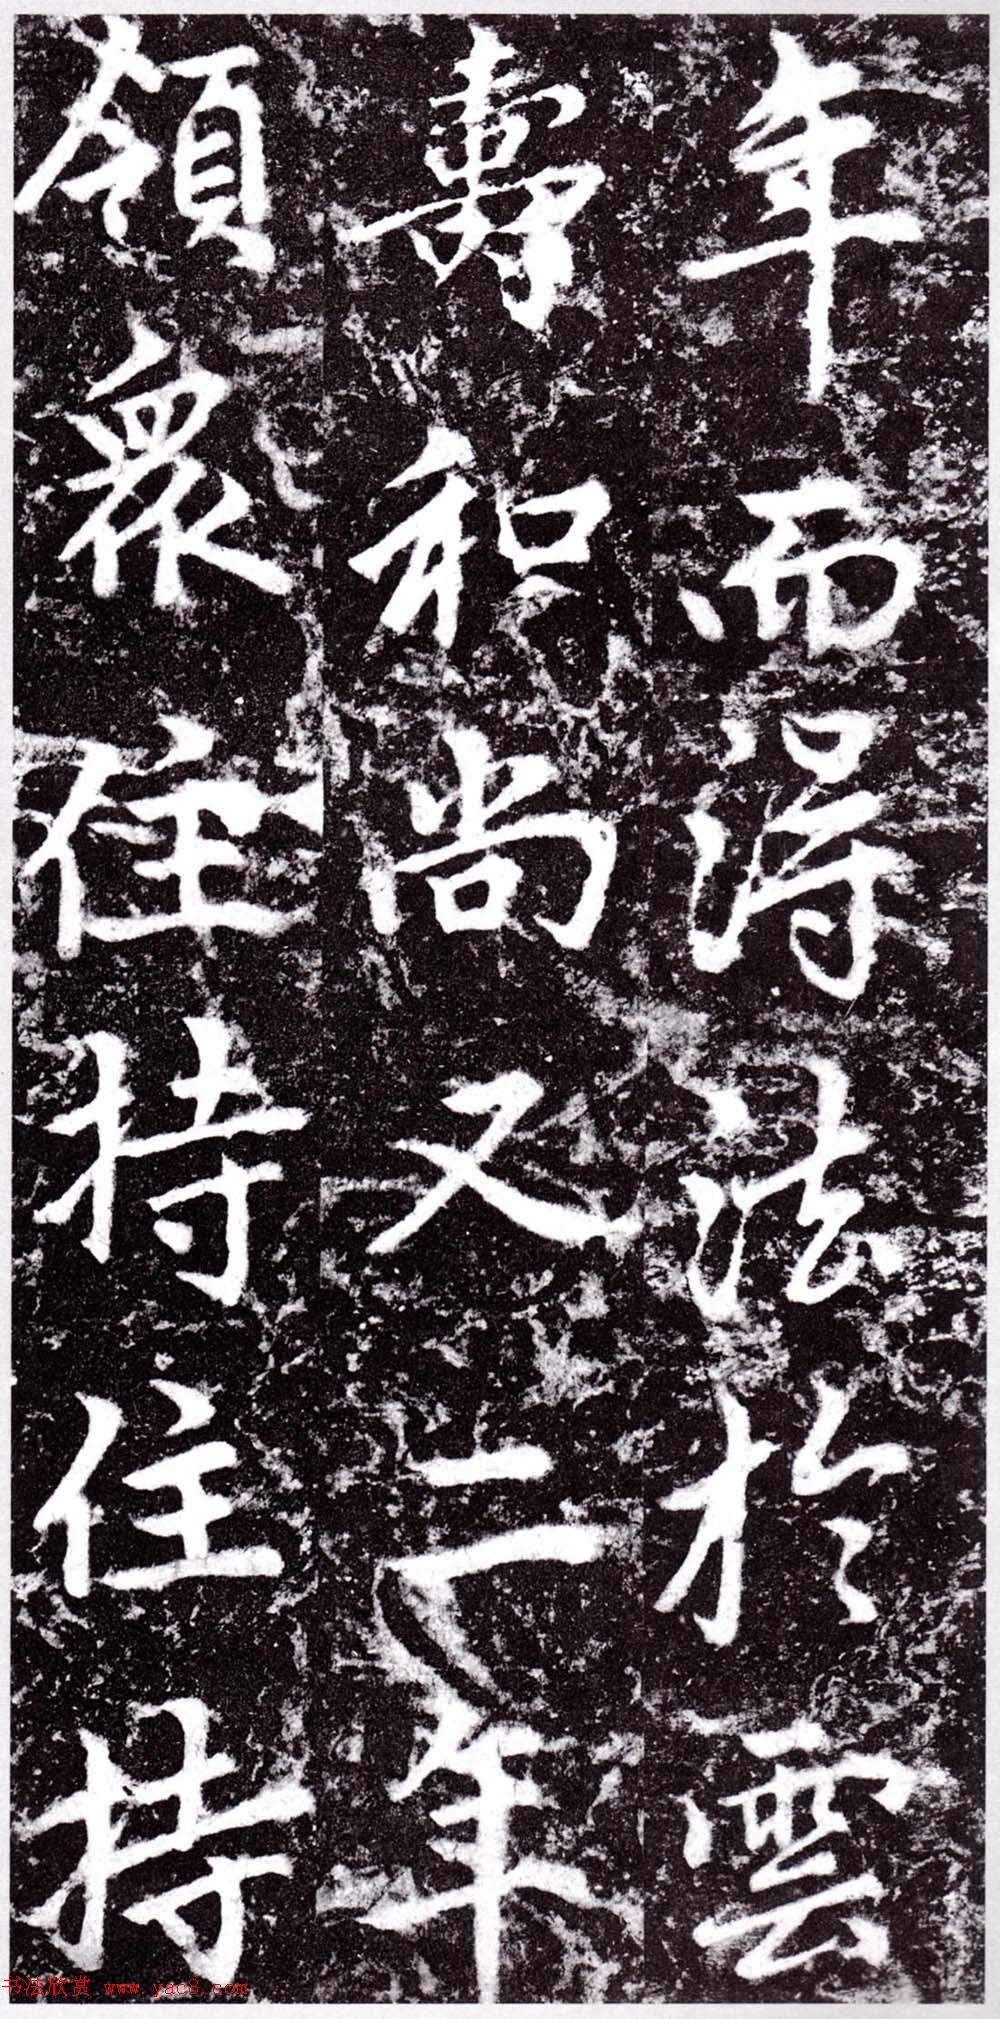 年而得法於雲
壽和尚又二年
領衆住持住持
书法欣赏 www.yac8.com